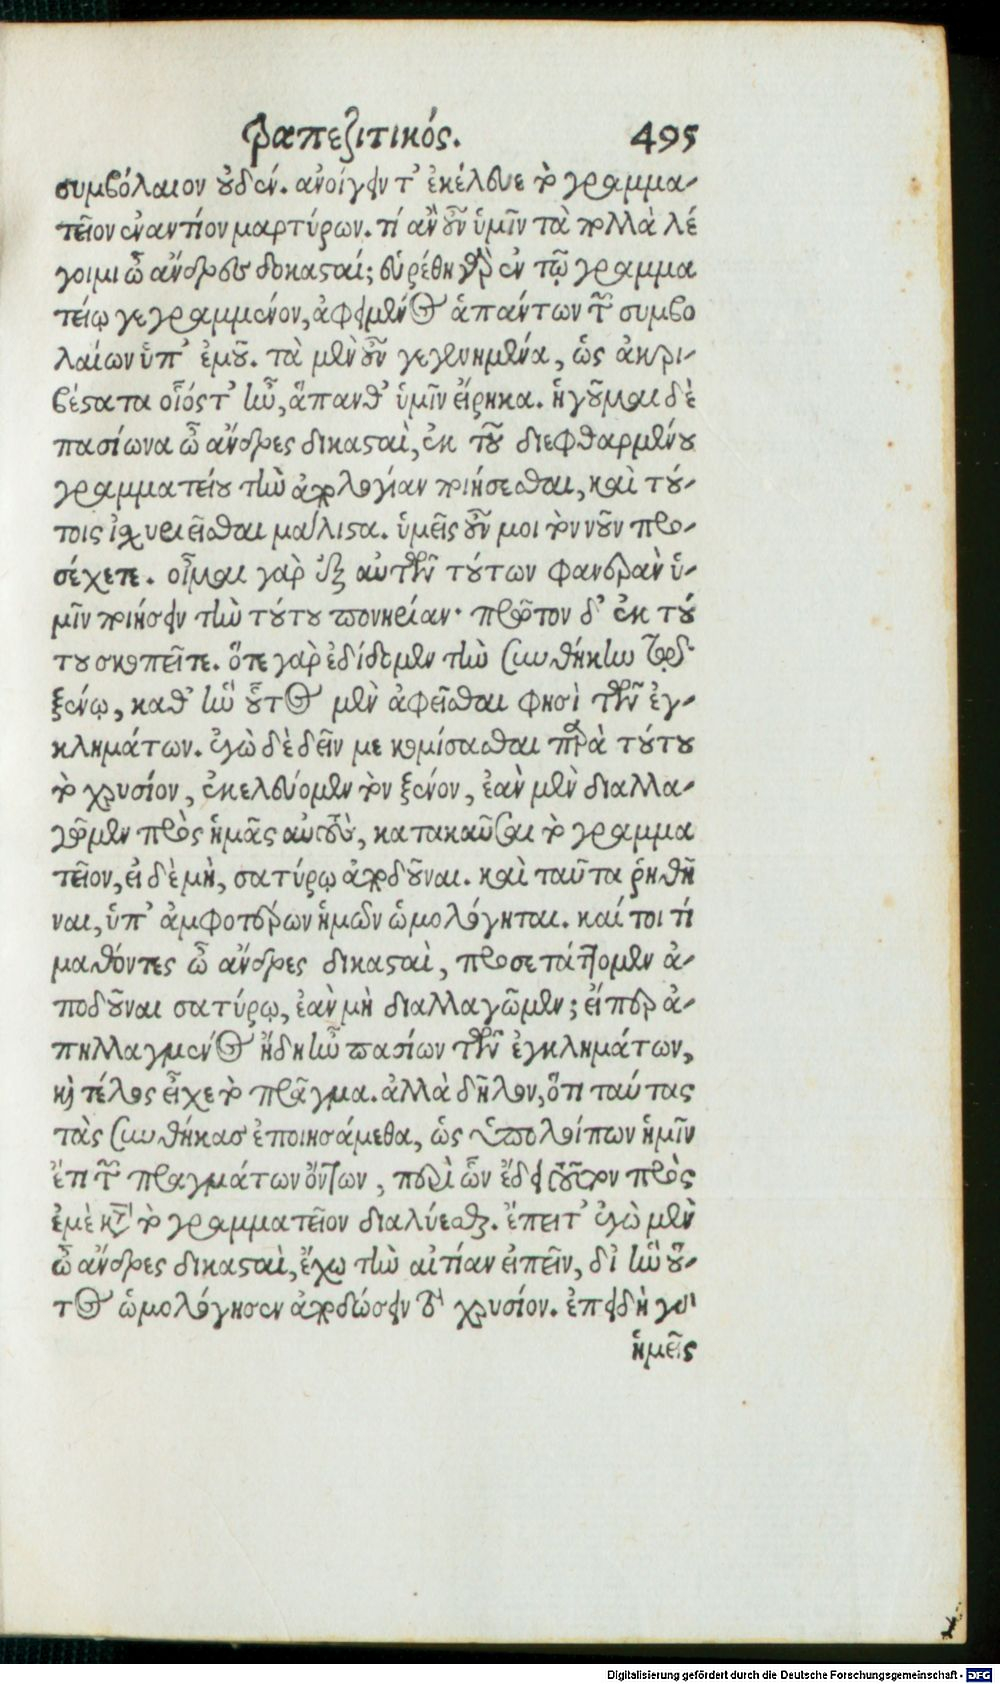 τραπεζιτικός. 495
συμβόλαιον οὐδέν. ἀνοίγειν τ' ἐκέλευε τὸ γραμμα-
τεῖον ἐναντίον μαρτύρων. τί ἂν οὖν ὑμῖν τὰ πολλὰ λέ
γοιμι ὦ ἄνδρες δικασταί; εὑρέθη γὰρ ἐν τῷ γραμμα
τείῳ γεγραμμένον, ἀφειμένος ἁπάντων τῶν συμβο
λαίων ὑπ' ἐμοῦ. τὰ μὲν οὖν γεγενημένα, ὡς ἀκρι-
βέστατα οἷός τ' ἦν, ἅπανθ' ὑμῖν εἴρηκα. ἡγοῦμαι δὲ
πασίωνα ὦ ἄνδρες δικασταὶ, ἐκ τοῦ διεφθαρμένου
γραμματείου τὴν ἀπολογίαν ποιήσεσθαι, καὶ τού-
τοις ἰσχυριεῖσθαι μάλιστα. ὑμεῖς οὖν μοι τὸν νοῦν προ-
σέχετε. οἶμαι γὰρ ἐξ αὐτῶν τούτων φανερὰν ὑ-
μῖν ποιήσειν τὴν τούτου πονηρίαν· πρῶτον δ' ἐκ τού
του σκοπεῖτε. ὅτε γὰρ ἐδίδομεν τὴν συνθήκην τῷ
ξένῳ, καθ' ἣν οὗτος μὲν ἀφεῖσθαι φησὶ τῶν ἐγ-
κλημάτων. ἐγὼ δὲ δεῖν με κομίσασθαι παρὰ τούτου
τὸ χρυσίον, ἐκελεύομεν τὸν ξένον, ἐὰν μὲν διαλλα-
γῶμεν πρὸς ἡμᾶς αὐτοὺς, κατακαῦσαι τὸ γραμμα
τεῖον, εἰ δὲ μὴ, σατύρῳ ἀποδοῦναι. καὶ ταῦτα ῥηθῆ
ναι, ὑπ' ἀμφοτέρων ἡμῶν ὡμολόγηται. καί τοι τί
μαθόντες ὦ ἄνδρες δικασταὶ, προσετάττομεν ἀ-
ποδοῦναι σατύρῳ, ἐὰν μὴ διαλλαγῶμεν; εἴπερ ἀ-
πηλλαγμένος ἤδη ἦν πασίων τῶν ἐγκλημάτων,
καὶ τέλος εἶχε τὸ πρᾶγμα. ἀλλὰ δῆλον, ὅτι ταύτας
τὰς συνθήκας ἐποιησάμεθα, ὡς ὑπολοίπων ἡμῖν
ἔτι τῶν πραγμάτων ὄντων, περὶ ὧν ἔδει τοῦτον πρὸς
ἐμὲ κατὰ τὸ γραμματεῖον διαλύεσθαι. ἔπειτ' ἐγὼ μὲν
ὦ ἄνδρες δικασταὶ, ἔχω τὴν αἰτίαν εἰπεῖν, δι' ἣν οὗ-
τος ὡμολόγησεν ἀποδώσειν τὸ χρυσίον. ἐπειδὴ γὰρ
ἡμεῖς
Digitalisierung gefördert durch die Deutsche Forschungsgemeinschaft - DFG